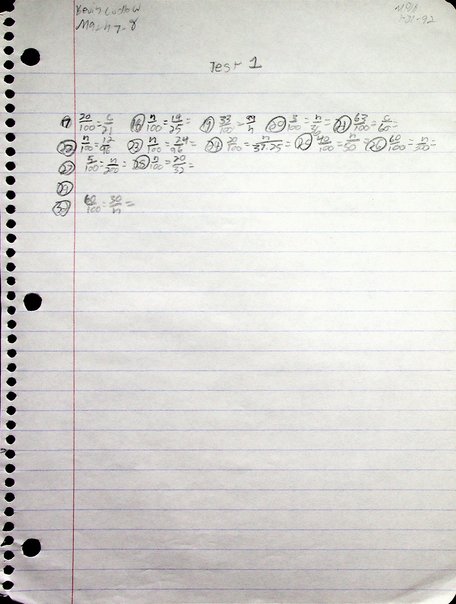 Kevin Ludlow
Math 7-8
Test 1
17 20/100 = 6/21 18 n/100 = 19/25 19 33/100 = 33/n 20 3/100 = n/36 21 63/100 = 6/60 =
22 n/100 = 12/96 23 n/100 = 24/96 = 24 20/100 = n/37.25 = 25 40/100 = n/50 = 26 60/100 = n/50 =
27 5/100 = n/200 = 28 n/100 = 20/32 =
29
30 60/100 = 30/n =